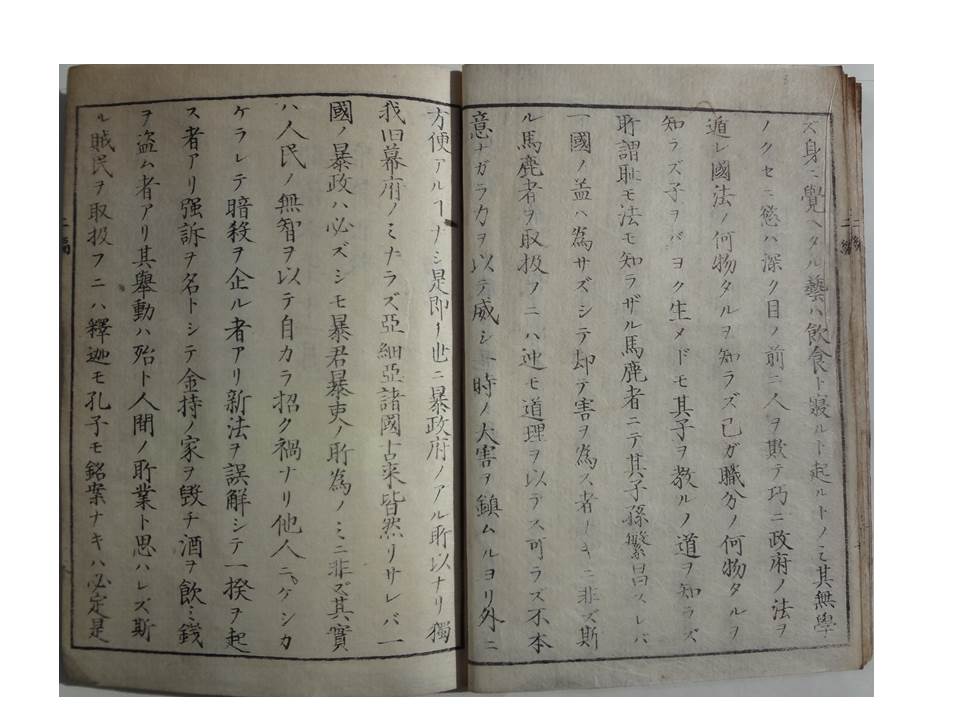 ズ身ニ覺ヘタル藝ハ飲食ト寢ルト起ルトノミ其無學
ノクセニ慾ハ深ク目ノ前ニ人ヲ欺テ巧ニ政府ノ法ヲ
遁レ國法ノ何物タルヲ知ラズ己ガ職分ノ何物タルヲ
知ラズ子ヲバヨク生メドモ其子ヲ教ルノ道ヲ知ラズ
所謂恥モ法モ知ラザル馬鹿者ニテ其子孫繁昌スレバ
一國ノ益ハ為サズシテ却テ害ヲ為ス者ナキニ非ズ斯
ル馬鹿者ヲ取扱フニハ迚モ道理ヲ以テス可ラズ不本
意ナガラ力ヲ以テ威シ一時ノ大害ヲ鎮ムルヨリ外ニ
方便アルヿナシ是即チ世ニ暴政府ノアル所以ナリ獨
我旧幕府ノミナラズ亞細亞諸國古来皆然リサレバ一
國ノ暴政ハ必ズシモ暴君暴吏ノ所為ノミニ非ズ其實
ハ人民ノ無智ヲ以テ自カラ招ク禍ナリ他人ニケシカ
ケラレテ暗殺ヲ企ル者アリ新法ヲ誤解シテ一揆ヲ起
ス者アリ強訴ヲ名トシテ金持ノ家ヲ毀チ酒ヲ飲ミ銭
ヲ盗ム者アリ其舉動ハ殆ト人間ノ所業ト思ハレズ斯
ル賊民ヲ取扱フニハ釋迦モ孔子モ銘案ナキハ必定是
二編